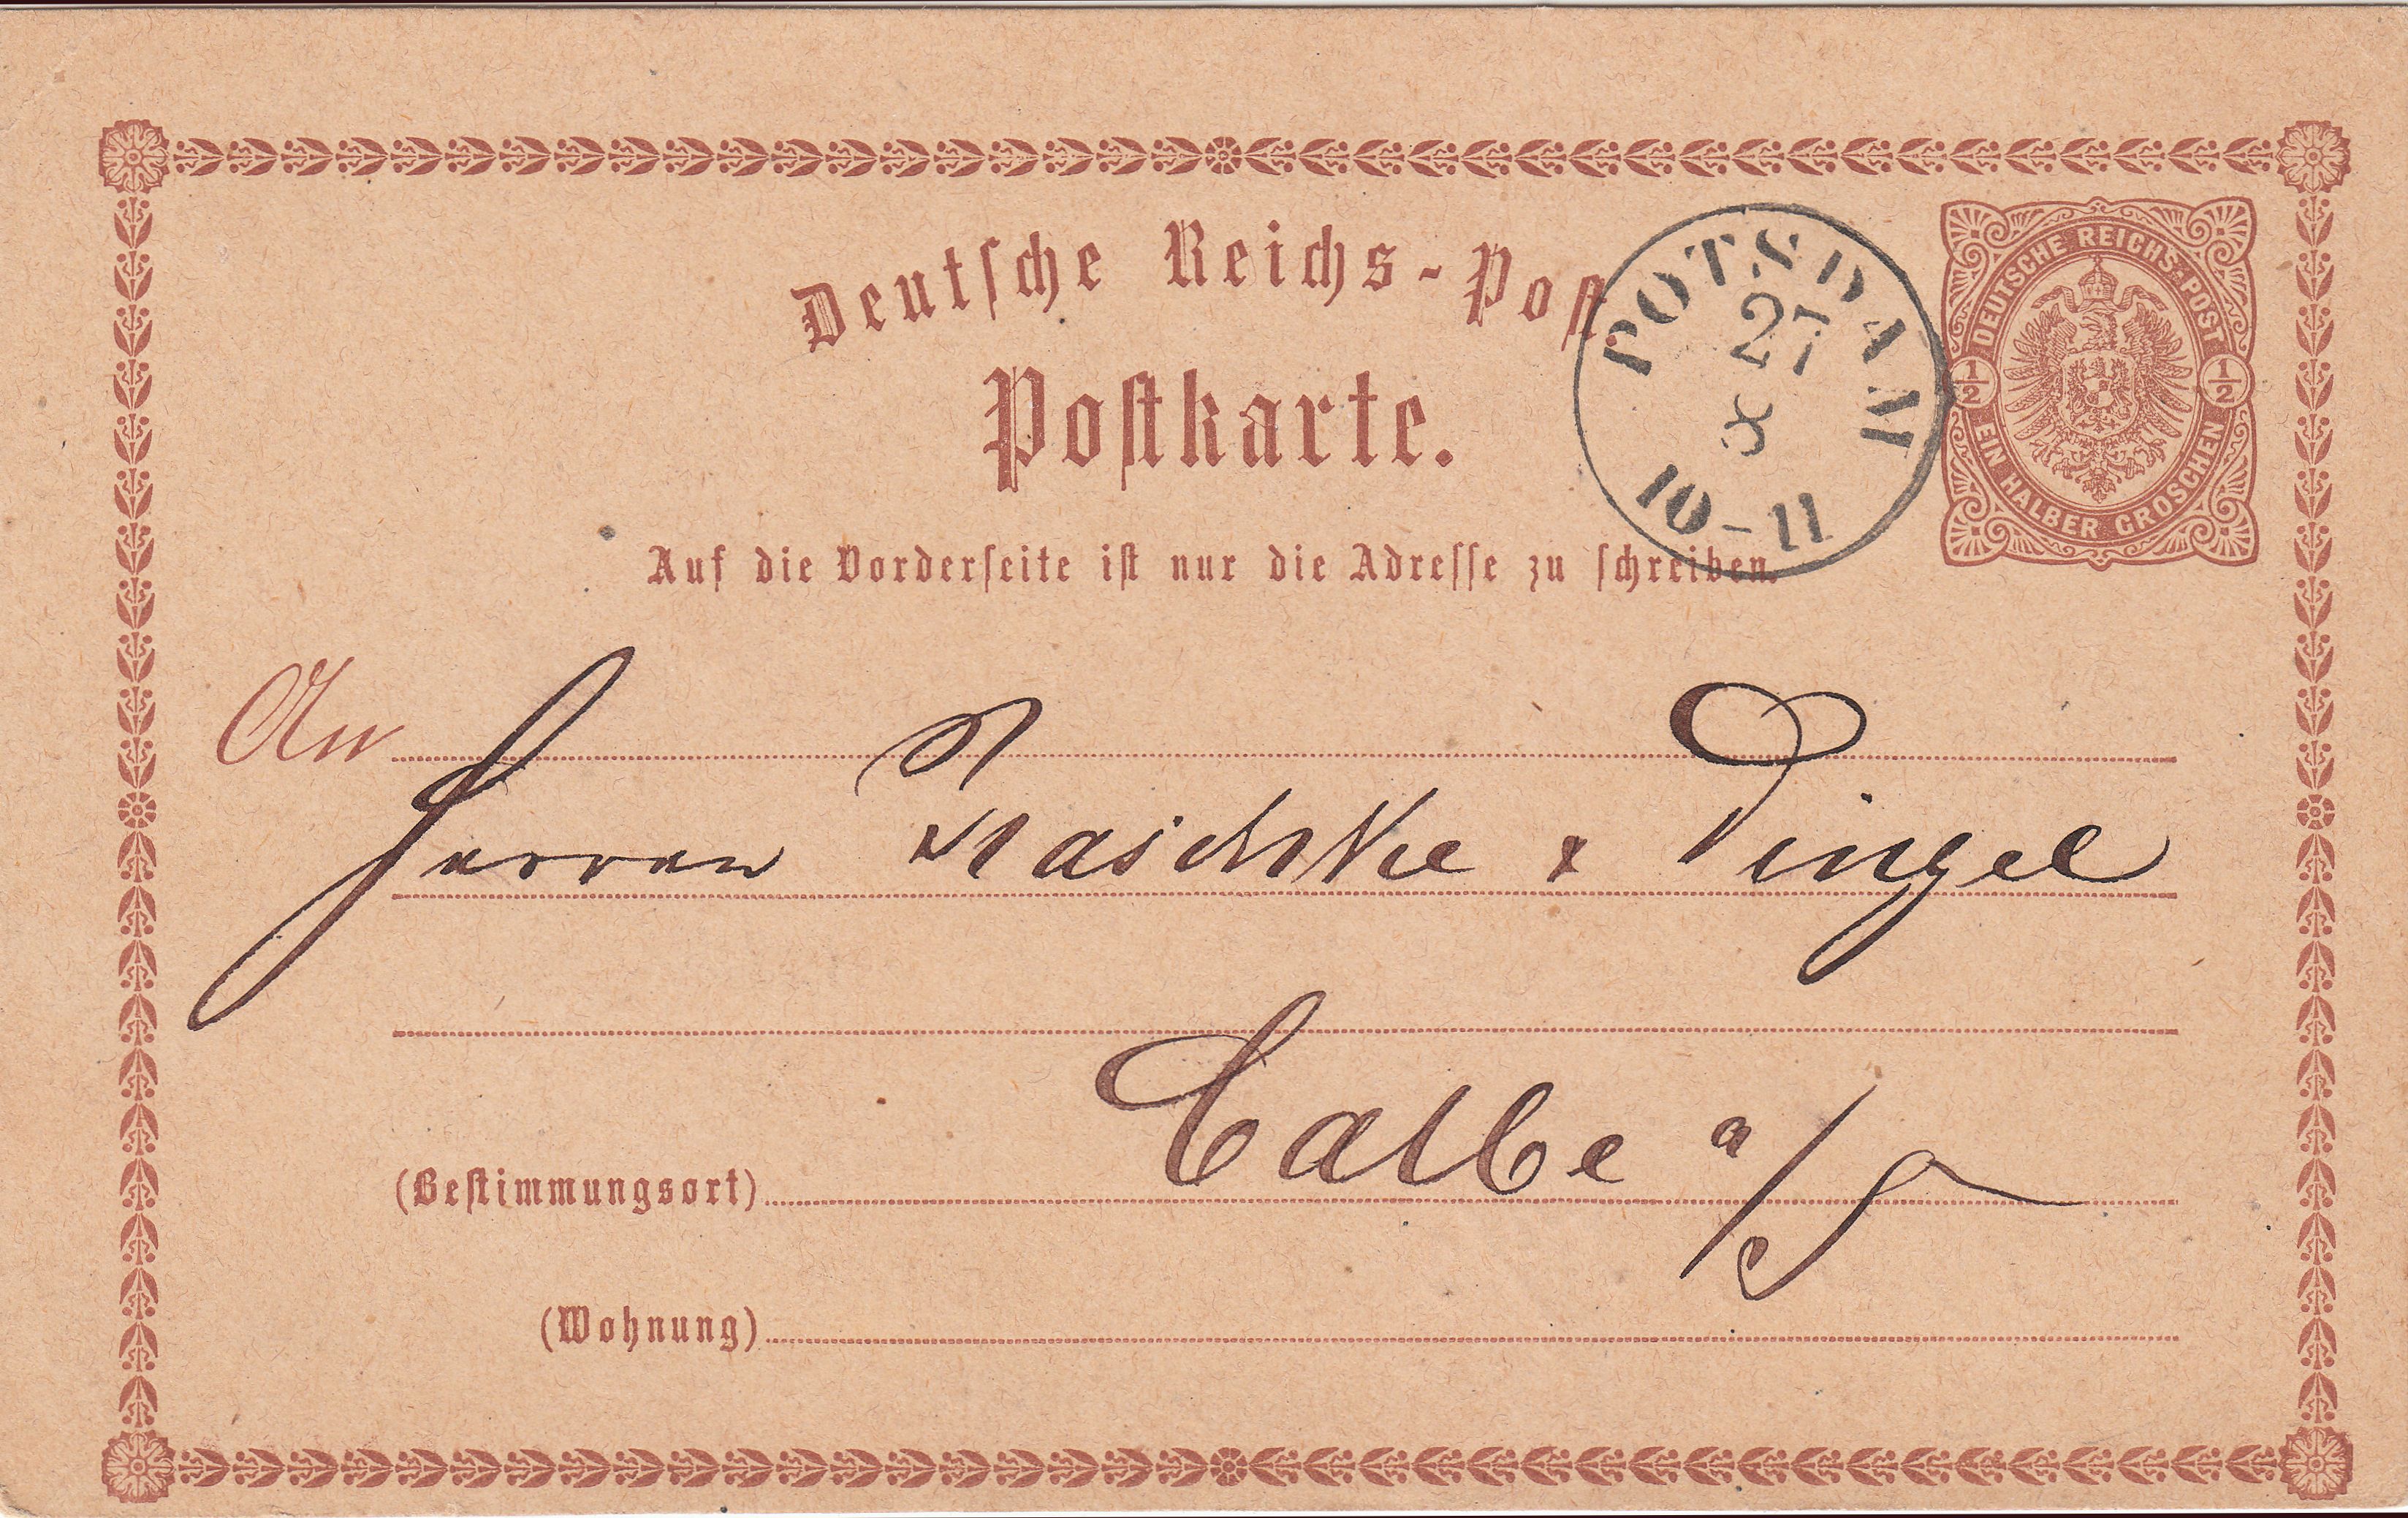 Deutsche Reichs-Post.
POTSDAM
27
8
10-11
DEUTSCHE REICHS-POST
1/2 1/2
EIN HALBER GROSCHEN
Postkarte.
Auf die Vorderseite ist nur die Adresse zu schreiben.
An
Herren Raschke & Dingel
Calbe a/S
(Bestimmungsort)
(Wohnung)